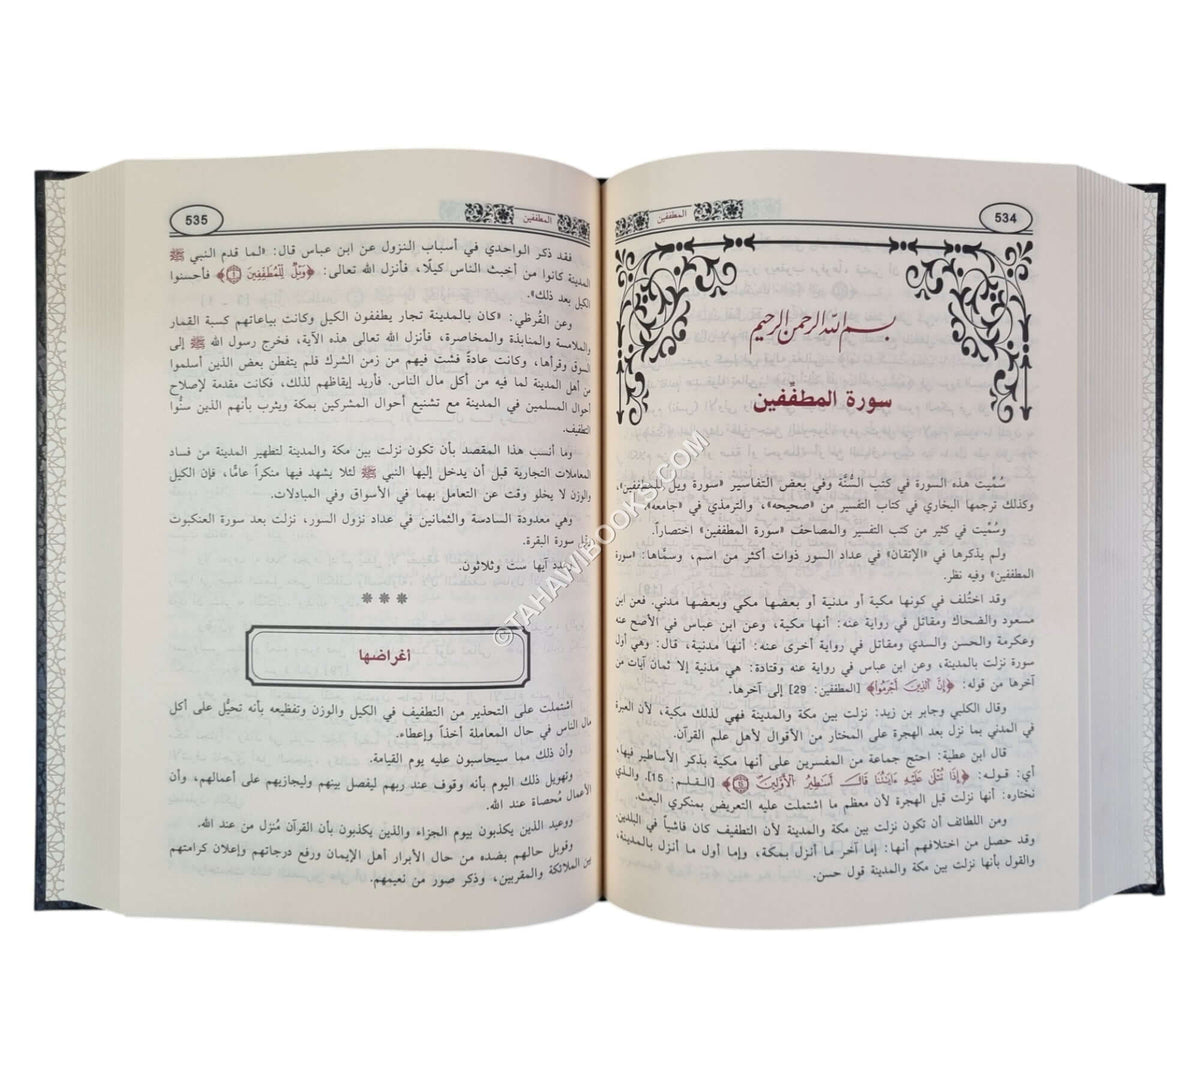 534
المطففين
بسم الله الرحمن الرحيم
سورة المطفِّفين
سُمِّيت هذه السورة في كتب السُّنَّة وفي بعض التفاسير «سورة ويل للمطففين»،
وكذلك ترجمها البخاري في كتاب التفسير من «صحيحه»، والترمذي في «جامعه».
وسُمِّيت في كثير من كتب التفسير والمصاحف «سورة المطففين» اختصاراً.
ولم يذكرها في «الإتقان» في عداد السور ذوات أكثر من اسم، وسمَّاها: «سورة
المطففين» وفيه نظر.
وقد اختُلف في كونها مكية أو مدنية أو بعضها مكي وبعضها مدني. فعن ابن
مسعود والضحاك ومقاتل في رواية عنه: أنها مكية، وعن ابن عباس في الأصح عنه
وعكرمة والحسن والسدي ومقاتل في رواية أخرى عنه: أنها مدنية، قال: وهي أول
سورة نزلت بالمدينة، وعن ابن عباس في رواية عنه وقتادة: هي مدنية إلا ثمان آيات من
آخرها من قوله: ﴿إِنَّ الَّذِينَ أَجْرَمُوا﴾ [المطففين: 29] إلى آخرها.
وقال الكلبي وجابر بن زيد: نزلت بين مكة والمدينة فهي لذلك مكية، لأن العبرة
في المدني بما نزل بعد الهجرة على المختار من الأقوال لأهل علم القرآن.
قال ابن عطية: احتج جماعة من المفسرين على أنها مكية بذكر الأساطير فيها،
أي: قوله: ﴿إِذَا تُتْلَى عَلَيْهِ ءَايَتُنَا قَالَ أَسَطِيرُ الْأَوَّلِينَ﴾ [القلم: 15]. والذي
نختاره: أنها نزلت قبل الهجرة لأن معظم ما اشتملت عليه التعريض بمنكري البعث.
ومن اللطائف أن تكون نزلت بين مكة والمدينة لأن التطفيف كان فاشياً في البلدين.
وقد حصل من اختلافهم أنها: إما آخر ما أنزل بمكة، وإما أول ما أنزل بالمدينة،
والقول بأنها نزلت بين مكة والمدينة قول حسن.
535
المطففين
فقد ذكر الواحدي في أسباب النزول عن ابن عباس قال: «لما قدم النبي ﷺ
المدينة كانوا من أخبث الناس كيلًا، فأنزل الله تعالى: ﴿وَيْلٌ لِّلْمُطَفِّفِينَ ١﴾ فأحسنوا
الكيل بعد ذلك».
وعن القُرظي: «كان بالمدينة تجار يطففون الكيل وكانت بياعاتهم كسبة القِمار
والملامسة والمنابذة والمخاصرة، فأنزل الله تعالى هذه الآية، فخرج رسول الله ﷺ إلى
السوق وقرأها، وكانت عادةً فشت فيهم من زمن الشرك فلم يتفطن بعض الذين أسلموا
من أهل المدينة لما فيه من أكل مال الناس. فأريد إيقاظهم لذلك، فكانت مقدمة لإصلاح
أحوال المسلمين في المدينة مع تشنيع أحوال المشركين بمكة ويثرب بأنهم الذين سنُّوا
التطفيف.
وما أنسب هذا المقصد بأن تكون نزلت بين مكة والمدينة لتطهير المدينة من فساد
المعاملات التجارية قبل أن يدخل إليها النبي ﷺ لئلا يشهد فيها منكراً عامًّا، فإن الكيل
والوزن لا يخلو وقت عن التعامل بهما في الأسواق وفي المبادلات.
وهي معدودة السادسة والثمانين في عداد نزول السور، نزلت بعد سورة العنكبوت
وقبل سورة البقرة.
وعدد آيها ست وثلاثون.
***
أغراضها
اشتملت على التحذير من التطفيف في الكيل والوزن وتفظيعه بأنه تحيُّل على أكل
مال الناس في حال المعاملة أخذاً وإعطاء.
وأن ذلك مما سيحاسبون عليه يوم القيامة.
وتهويل ذلك اليوم بأنه وقوف عند ربهم ليفصل بينهم وليجازيهم على أعمالهم، وأن
الأعمال مُحصاة عند الله.
ووعيد الذين يكذبون بيوم الجزاء والذين يكذبون بأن القرآن مُنزل من عند الله.
وقوبل حالهم بضده من حال الأبرار أهل الإيمان ورفع درجاتهم وإعلان كرامتهم
بين الملائكة والمقربين، وذكر صور من نعيمهم.
©TAHAWIBOOKS.COM